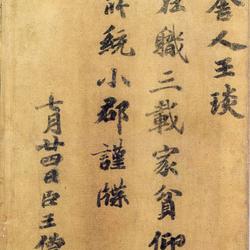 舍人王琰
在職三載家貧仰
所統小郡謹牒
七月廿四日臣王僧